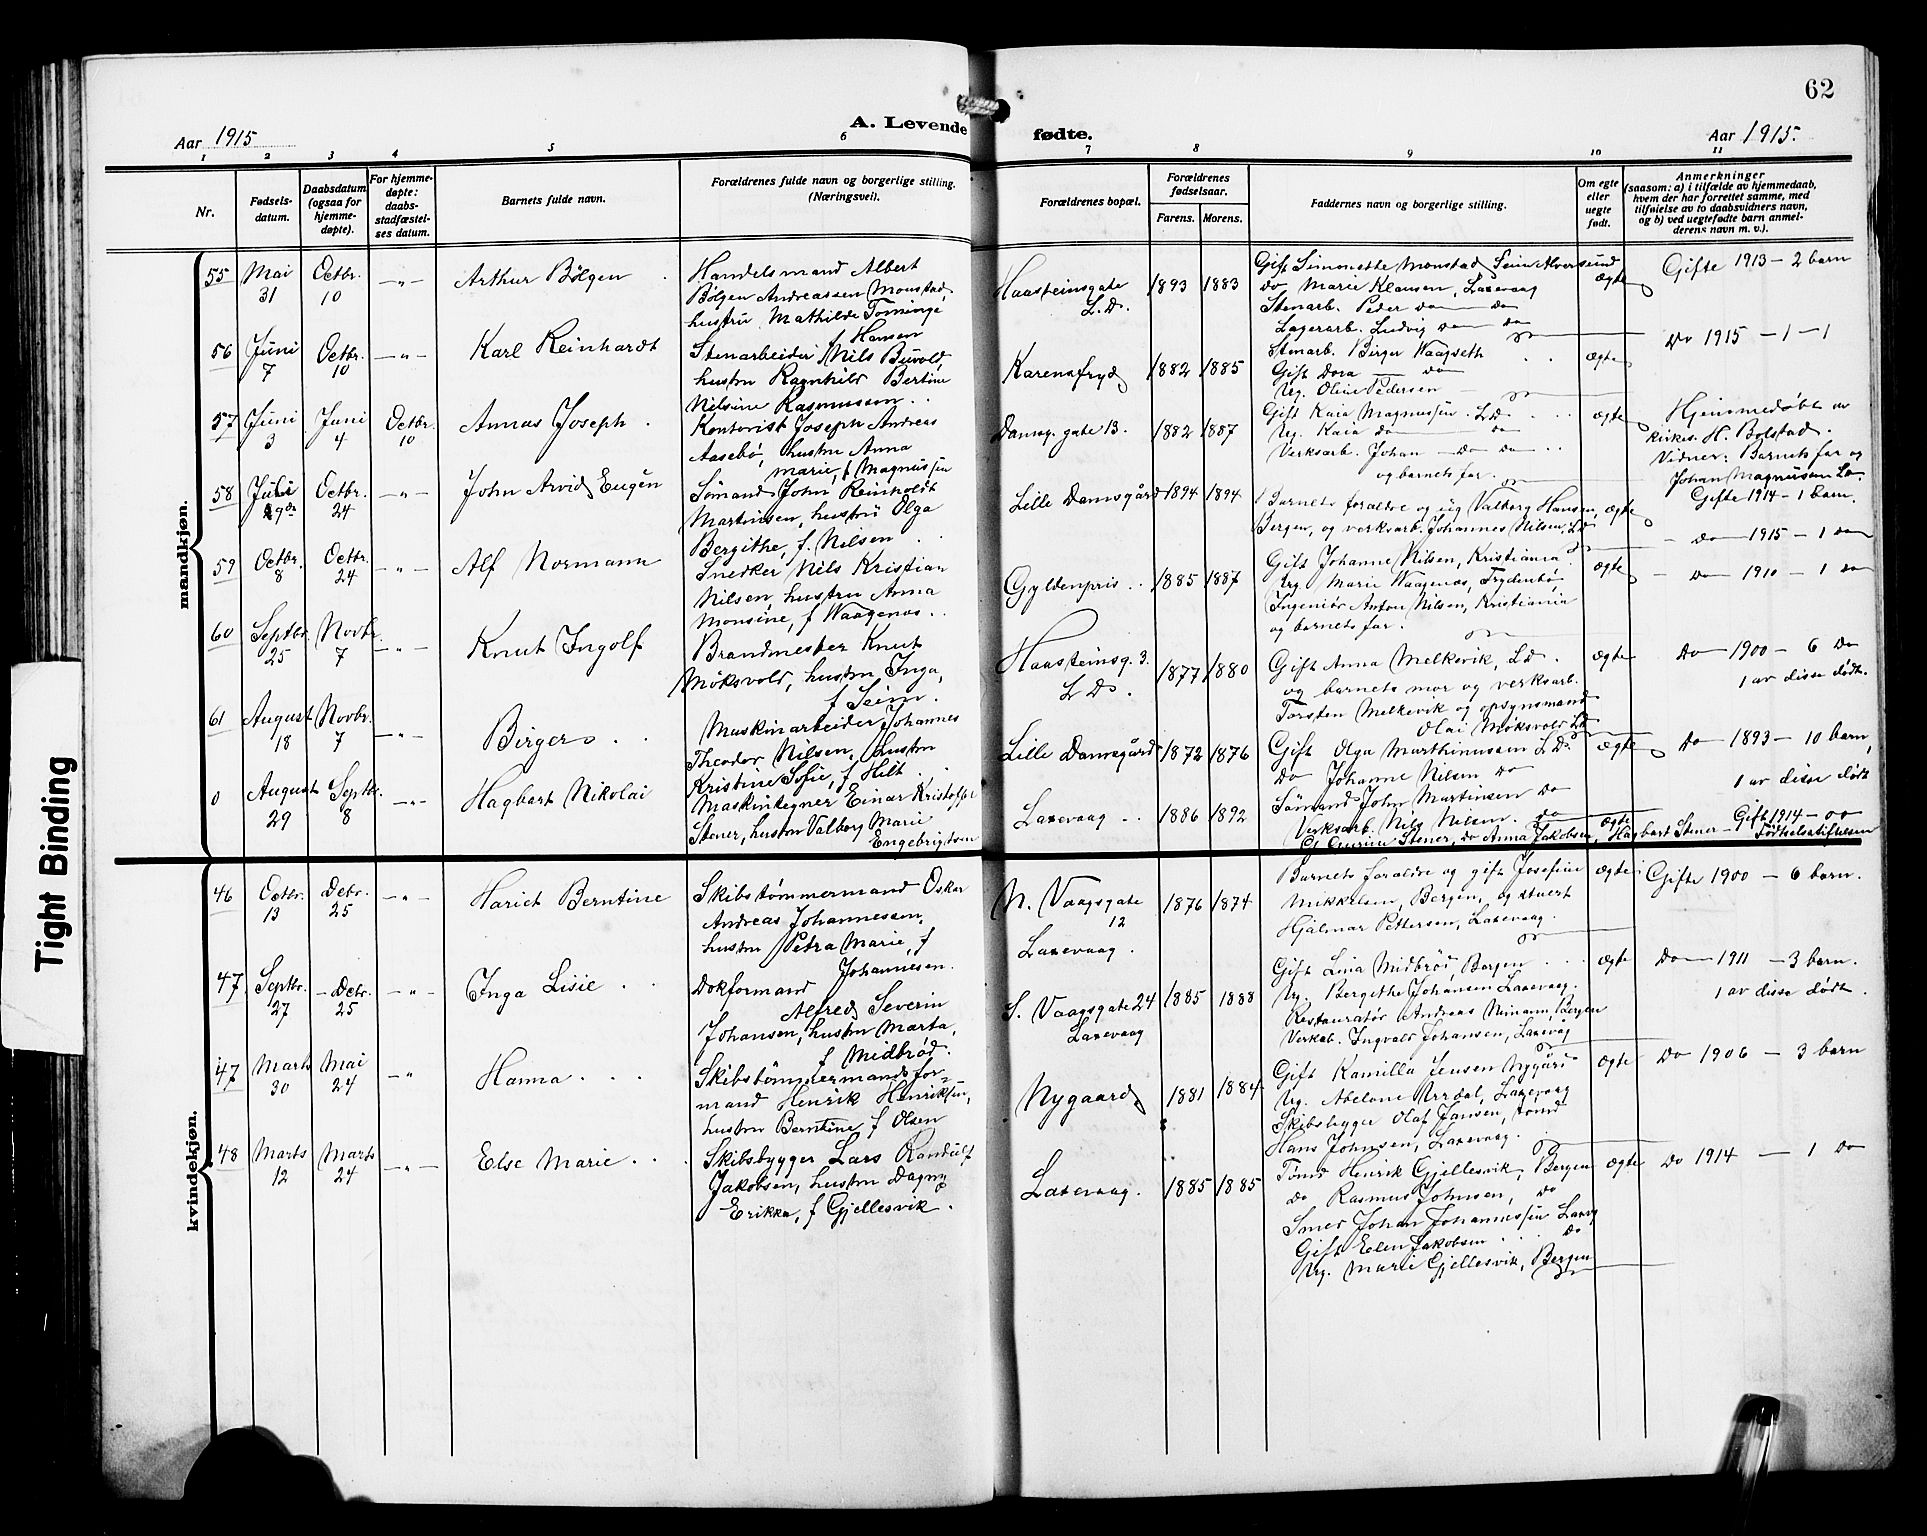 62
Aar 1915
A. Levende fødte.
Aar 1915.
1 2 3 4 5 6 7 8 9 10 11
Nr.
Fødsels-
datum.
Daabsdatum
(ogsaa for
hjemme-
døpte).
For hjemme-
døpte:
daabs-
stadfæstel-
ses datum.
Barnets fulde navn.
Forældrenes fulde navn og borgerlige stilling.
(Næringsvei).
Forældrenes bopæl.
Forældrenes
fødselsaar.
Farens. Morens.
Faddernes navn og borgerlige stilling.
Om egte
eller
uegte
født.
Anmerkninger
(saasom: a) i tilfælde av hjemmedaab,
hvem der har forrettet samme, med
tilføielse av to daabsvidners navn,
og b) ved uegtefødte barn anmel-
derens navn m. v.).
mandkjøn.
55 Mai 31 Octbr. 10 —„— Arthur Bölgen
Handelsmand Albert
Bölgen Andreassen Monstad,
hustru Mathilde Tominge
f Hansen
Haasteinsgate
L.D.
1893 1883
Gift Simmette Monstad, Seim Alversund
do Marie Klausen, Laxevaag
Stenarb. Peder do do
Lagerarb. Ludvig do do
ægte
Gifte 1913 - 2 barn
56 Juni 7 Octbr. 10 —„— Karl Reinhardt
Stenarbeider Nils Buvold,
hustru Ragnhild Bertine
Nilsine Rasmussen
Karensfryd
1882 1885
Stenarb. Birger Waagseth
Gift Dora — do
Ug. Oline Pedersen
ægte
Do 1915 - 1 - 1
57 Juni 3 Juni 4 Octbr. 10 Annas Joseph
Kontorist Joseph Andreas
Aasebø, hustru Anna
Marie, f Magnussen
Damsg. gate 13.
1882 1887
Gift Kaia Magnussen L.D.
Ug. Kaia do do
Verksarb. Johan do do
og barnets far.
ægte
Hjemmedøbt av
kirkes. H. Bolstad.
Vidner: Barnets far og
Johan Magnussen L.D.
58 Juli Octbr. 24 —„— John Arvid Eugén
Sømand John Reinholdt
Martinsen, hustru Olga
Bergithe, f. Nilsen
Lille Damsgård
1894 1894
Barnets foraldre og ug Valborg Hansen,
Bergen, og verksarb. Johannes Nilsen, L.D.
ægte
Gifte 1914 - 1 barn.
- do 1915 - 1 do
59 Octbr. 8 Octbr. 24 —„— Alf Normann
Snedker Nils Kristian
Nilsen, hustru Anna
Monsine, f Waagenos
Gyldenpris
1885 1887
Gift Johanne Nilsen, Kristiania
Ug Marie Waagenos, Frydenbø
Ingeniör Anton Nilsen, Kristiania
og barnets far.
ægte
- Do 1910 - 1 do
60 Septbr. 25 Novbr. 7 —„— Knut Ingolf
Brandmester Knut
Moksvold, hustru Inga,
f Seim.
Haasteinsg. 3.
L D.
1877 1880
Gift Anna Melkevik, L.D.
og barnets mor og verksarb.
Torsten Melkevik og opsynsmand
Olai Moksvold L.D.
ægte
Do 1900 - 6 Do
1 av disse dödt.
61 August 18 Novbr. 7 —„— Birger
Maskinarbeider Johannes
Theodor Nilsen, hustru
Kristine Sofie, f Hilt
Lille Damsgård
1872 1876
Gift Olga Marthinussen L.D.
Do Johanne Nilsen do
Sömand John Martinsen do
Verksarb. Nils Nilsen. do
ægte
Do 1893 - 10 barn,
1 av disse dödt
0 August 29 Septbr. 8 —„— Hagbart Nikolai
Maskintegner Einar Kristoffer
Stener, hustru Valborg Marie
Engebrigtsen
Laxevaag
1886 1892
Stener, do Anna Jakobsen, Hagbart Stener
ægte
Gift 1914 - 00
Födselsstiftelsen
kvindekjøn.
46 Octbr. 13 Debr. 25 —„— Hariet Berntine
Skibstømmermand Oskar
Andreas Johannessen,
hustru Petra Marie, f
Johannesen.
N. Vaagsgate
12
Laxevaag.
1876 1874
Barnets foraldre og gift Josefine
Mikkelsen, Bergen, og stuert
Hjalmar Pettersen, Laxevaag.
ægte
Gifte 1900 - 6 barn.
47 Septbr. 27 Debr. 25 —„— Inga Lisie
Dokformand
Alfred Severin
Johansen, hustru Marta,
f Midbrød.
S. Vaagsgate 24
Laxevaag
1885 1888
Gift Lina Midbrød Bergen
Ug. Bergithe Johansen Laxevaag.
Restauratør Andreas Nimann, Bergen
Verksb. Ingvald Johansen, Laxevåg
ægte
Do 1911 - 3 barn.
1 av disse dödt.
47 Marts 30 Mai 24 —„ Hanna
Skibstømmermandsfor-
mand Henrik Henriksen,
hustru Berntine f Olsen
Nygaard
1881 1884
Gift Kamilla Jensen Nygård
Ug. Abelone Urdal, Laxevaag
Skibsbygger Olaf Jansen, tømd
Hans Johnsen, Laxevaag.
ægte
Do 1906 - 3 barn
48 Marts 12 Marts 24 —„— Else Marie
Skibsbygger Lars Randulf
Jakobsen, hustru Dagny
Erikka, f Gjellesvik.
Laxevaag.
1885 1885
Tømd Henrik Gjellesvik, Bergen
do Rasmus Johnsen, do
Smed Johan Johannessen Laxvg
Gift Elen Jakobsen do
Ug. Marie Gjellesvik, Bergen
ægte
Do 1914 - 1 do
Tight Binding